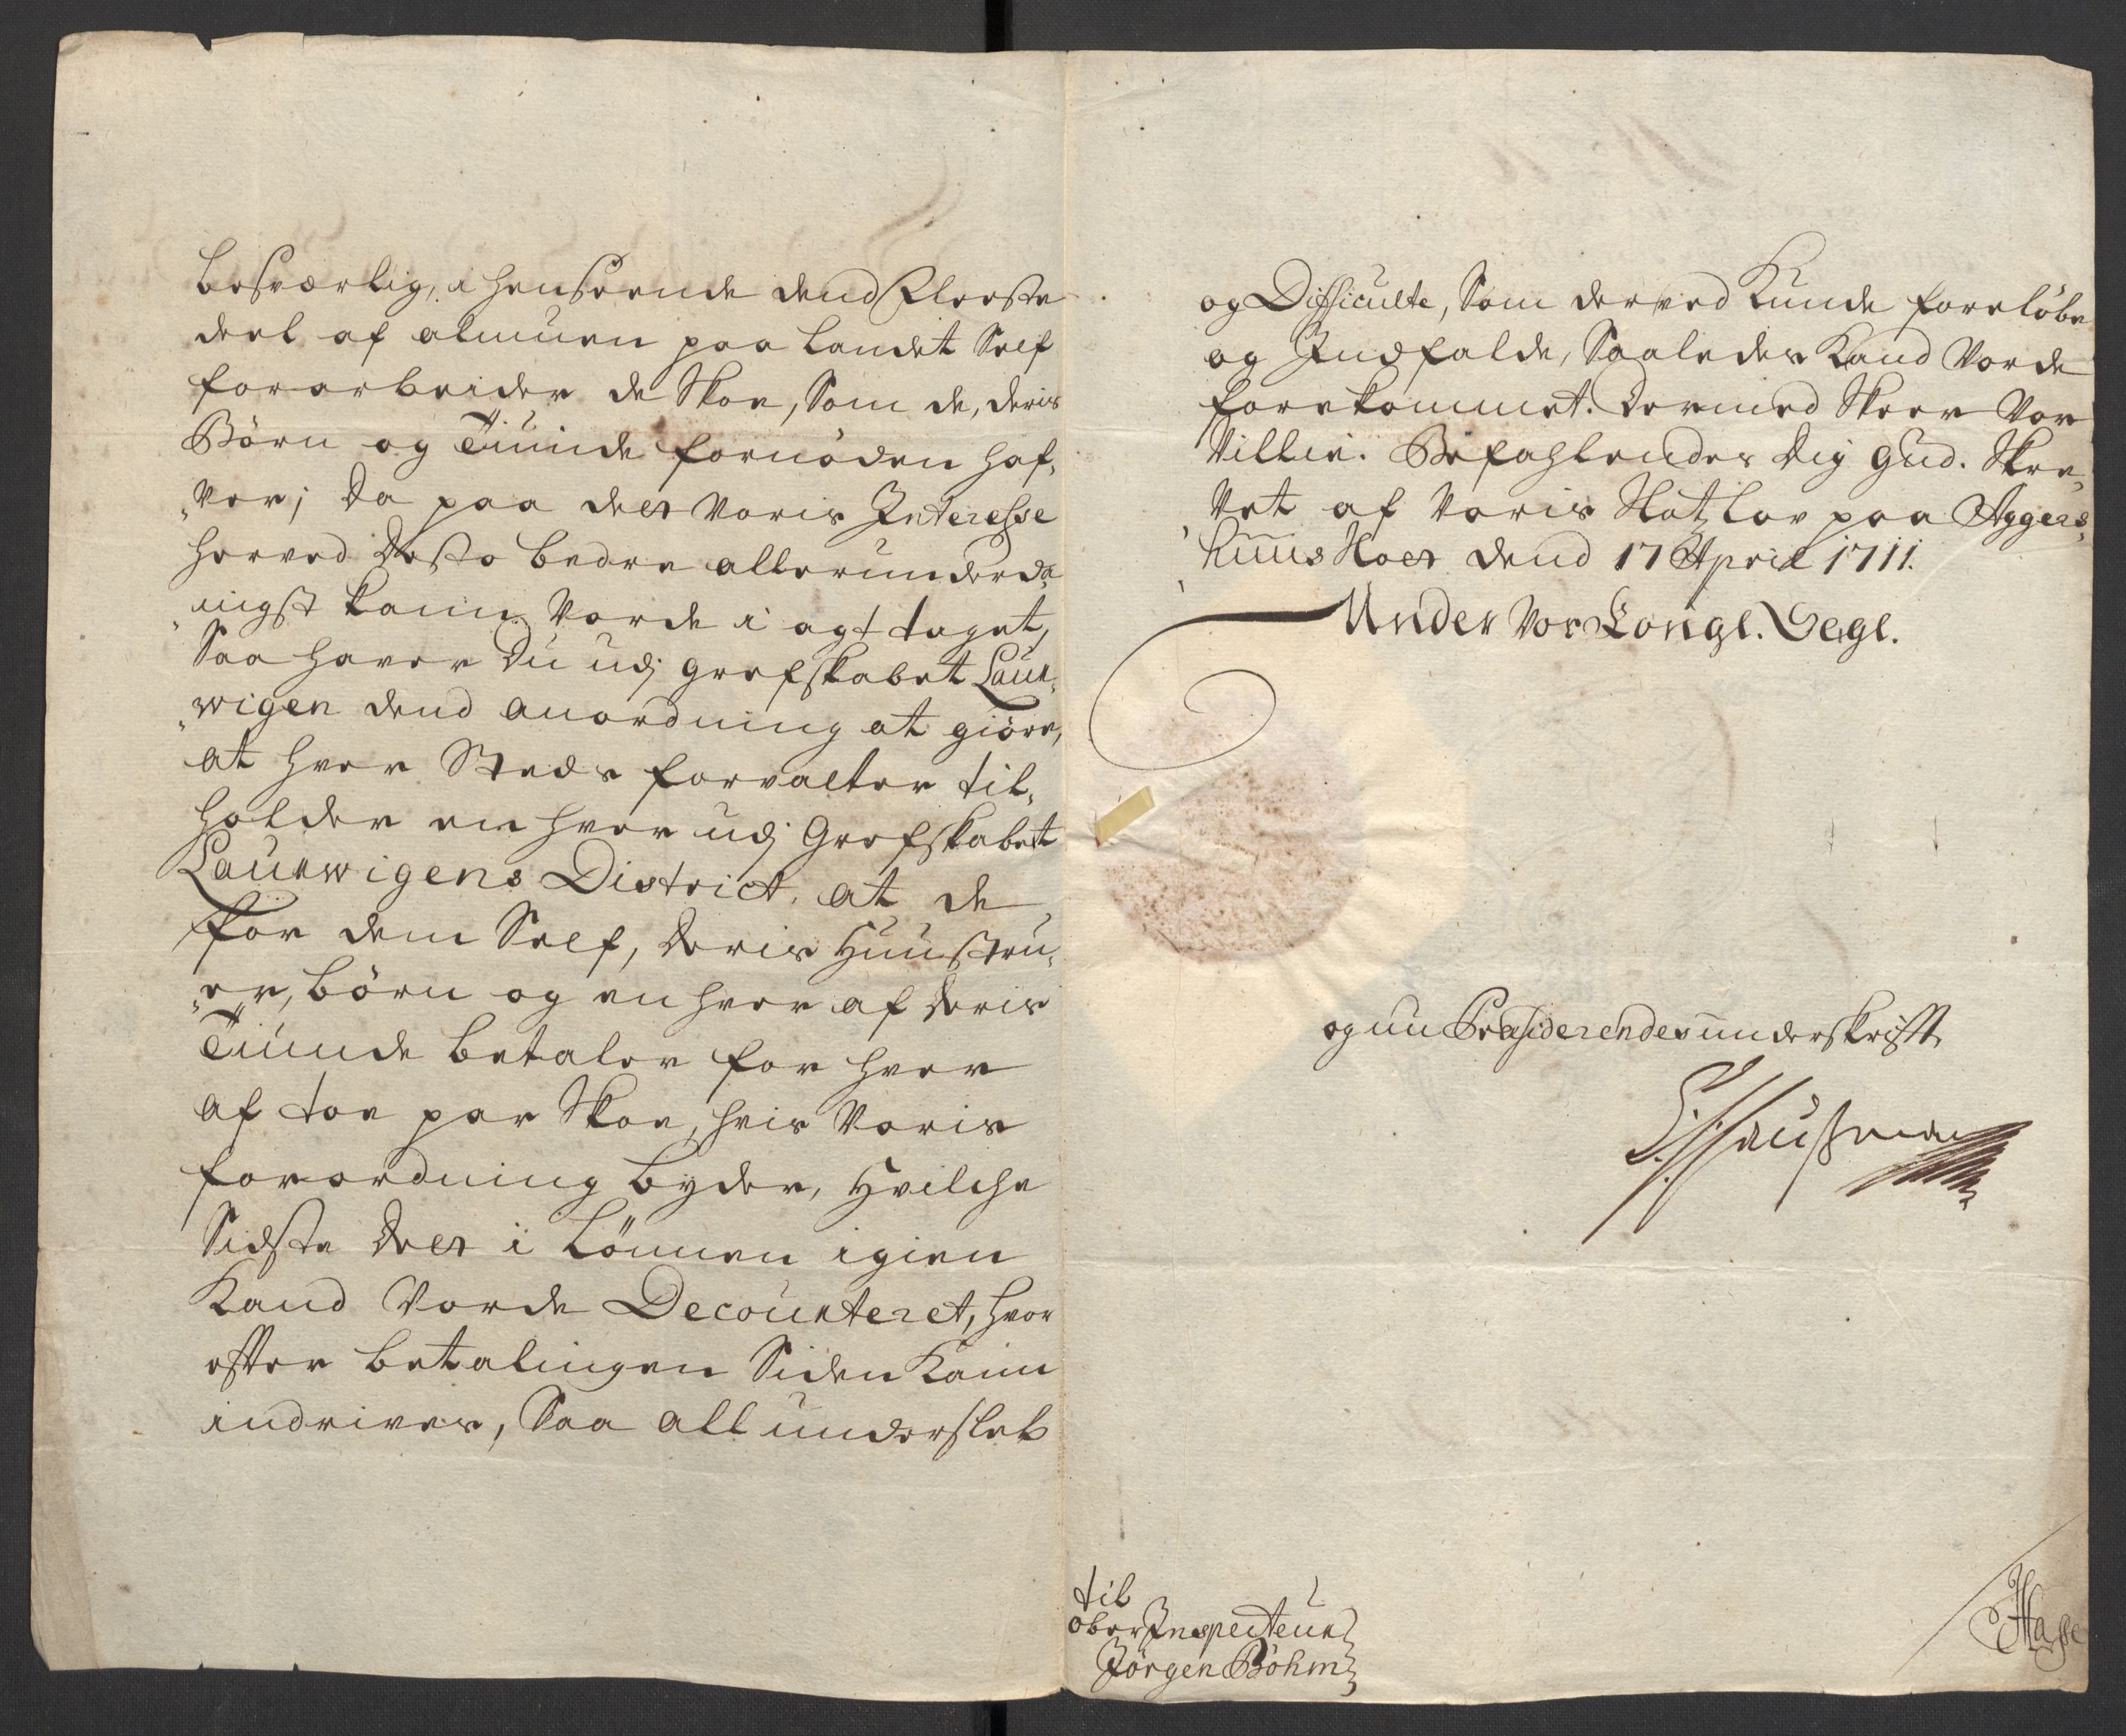 besværlig, i henseende dend Fleeste
deel af almuen paa Landet Self
forarbeider de Skoe, Som de, deris
Börn og Tiunde fornöden haf„
„ver; Da paa det Voris Interesse
herved desto bedre allerunderda„
„nigst kann Vorde i agt taget,
Saa haver Du udj grefskabet Laur„
„wigen dend anordning at giöre,
at hver Steds forvalter til„
holder en hver udj Grefskabet
Laurwigens District, at de
for dem Self, deris Huustru„
„er, börn og en hver af deris
Tiunde betaler for hver
af toe par Skoe, hvis Voris
forordning byder, Hvilche
Sidste det i Lönnen igien
Kand Vorde Decourteret, hvor
effter betalingen Siden Kann
indrives, Saa all underslæb
og Difficulte, Som derved Kunde foreløbe
og Indfalde, Saaledes Kand Vorde
forekommet. Dermed Skeer Vor
Villie. Befahlendes dig Gud. Skre„
„vet af Voris Slotzlov paa Aggers„
„huus Slott dend 17 April 1711.
Under Vor Kongl. Segl.
og nu Præsiderendes underskrifft
Haussman
til
ober Inspecteur
Jörgen Böhm